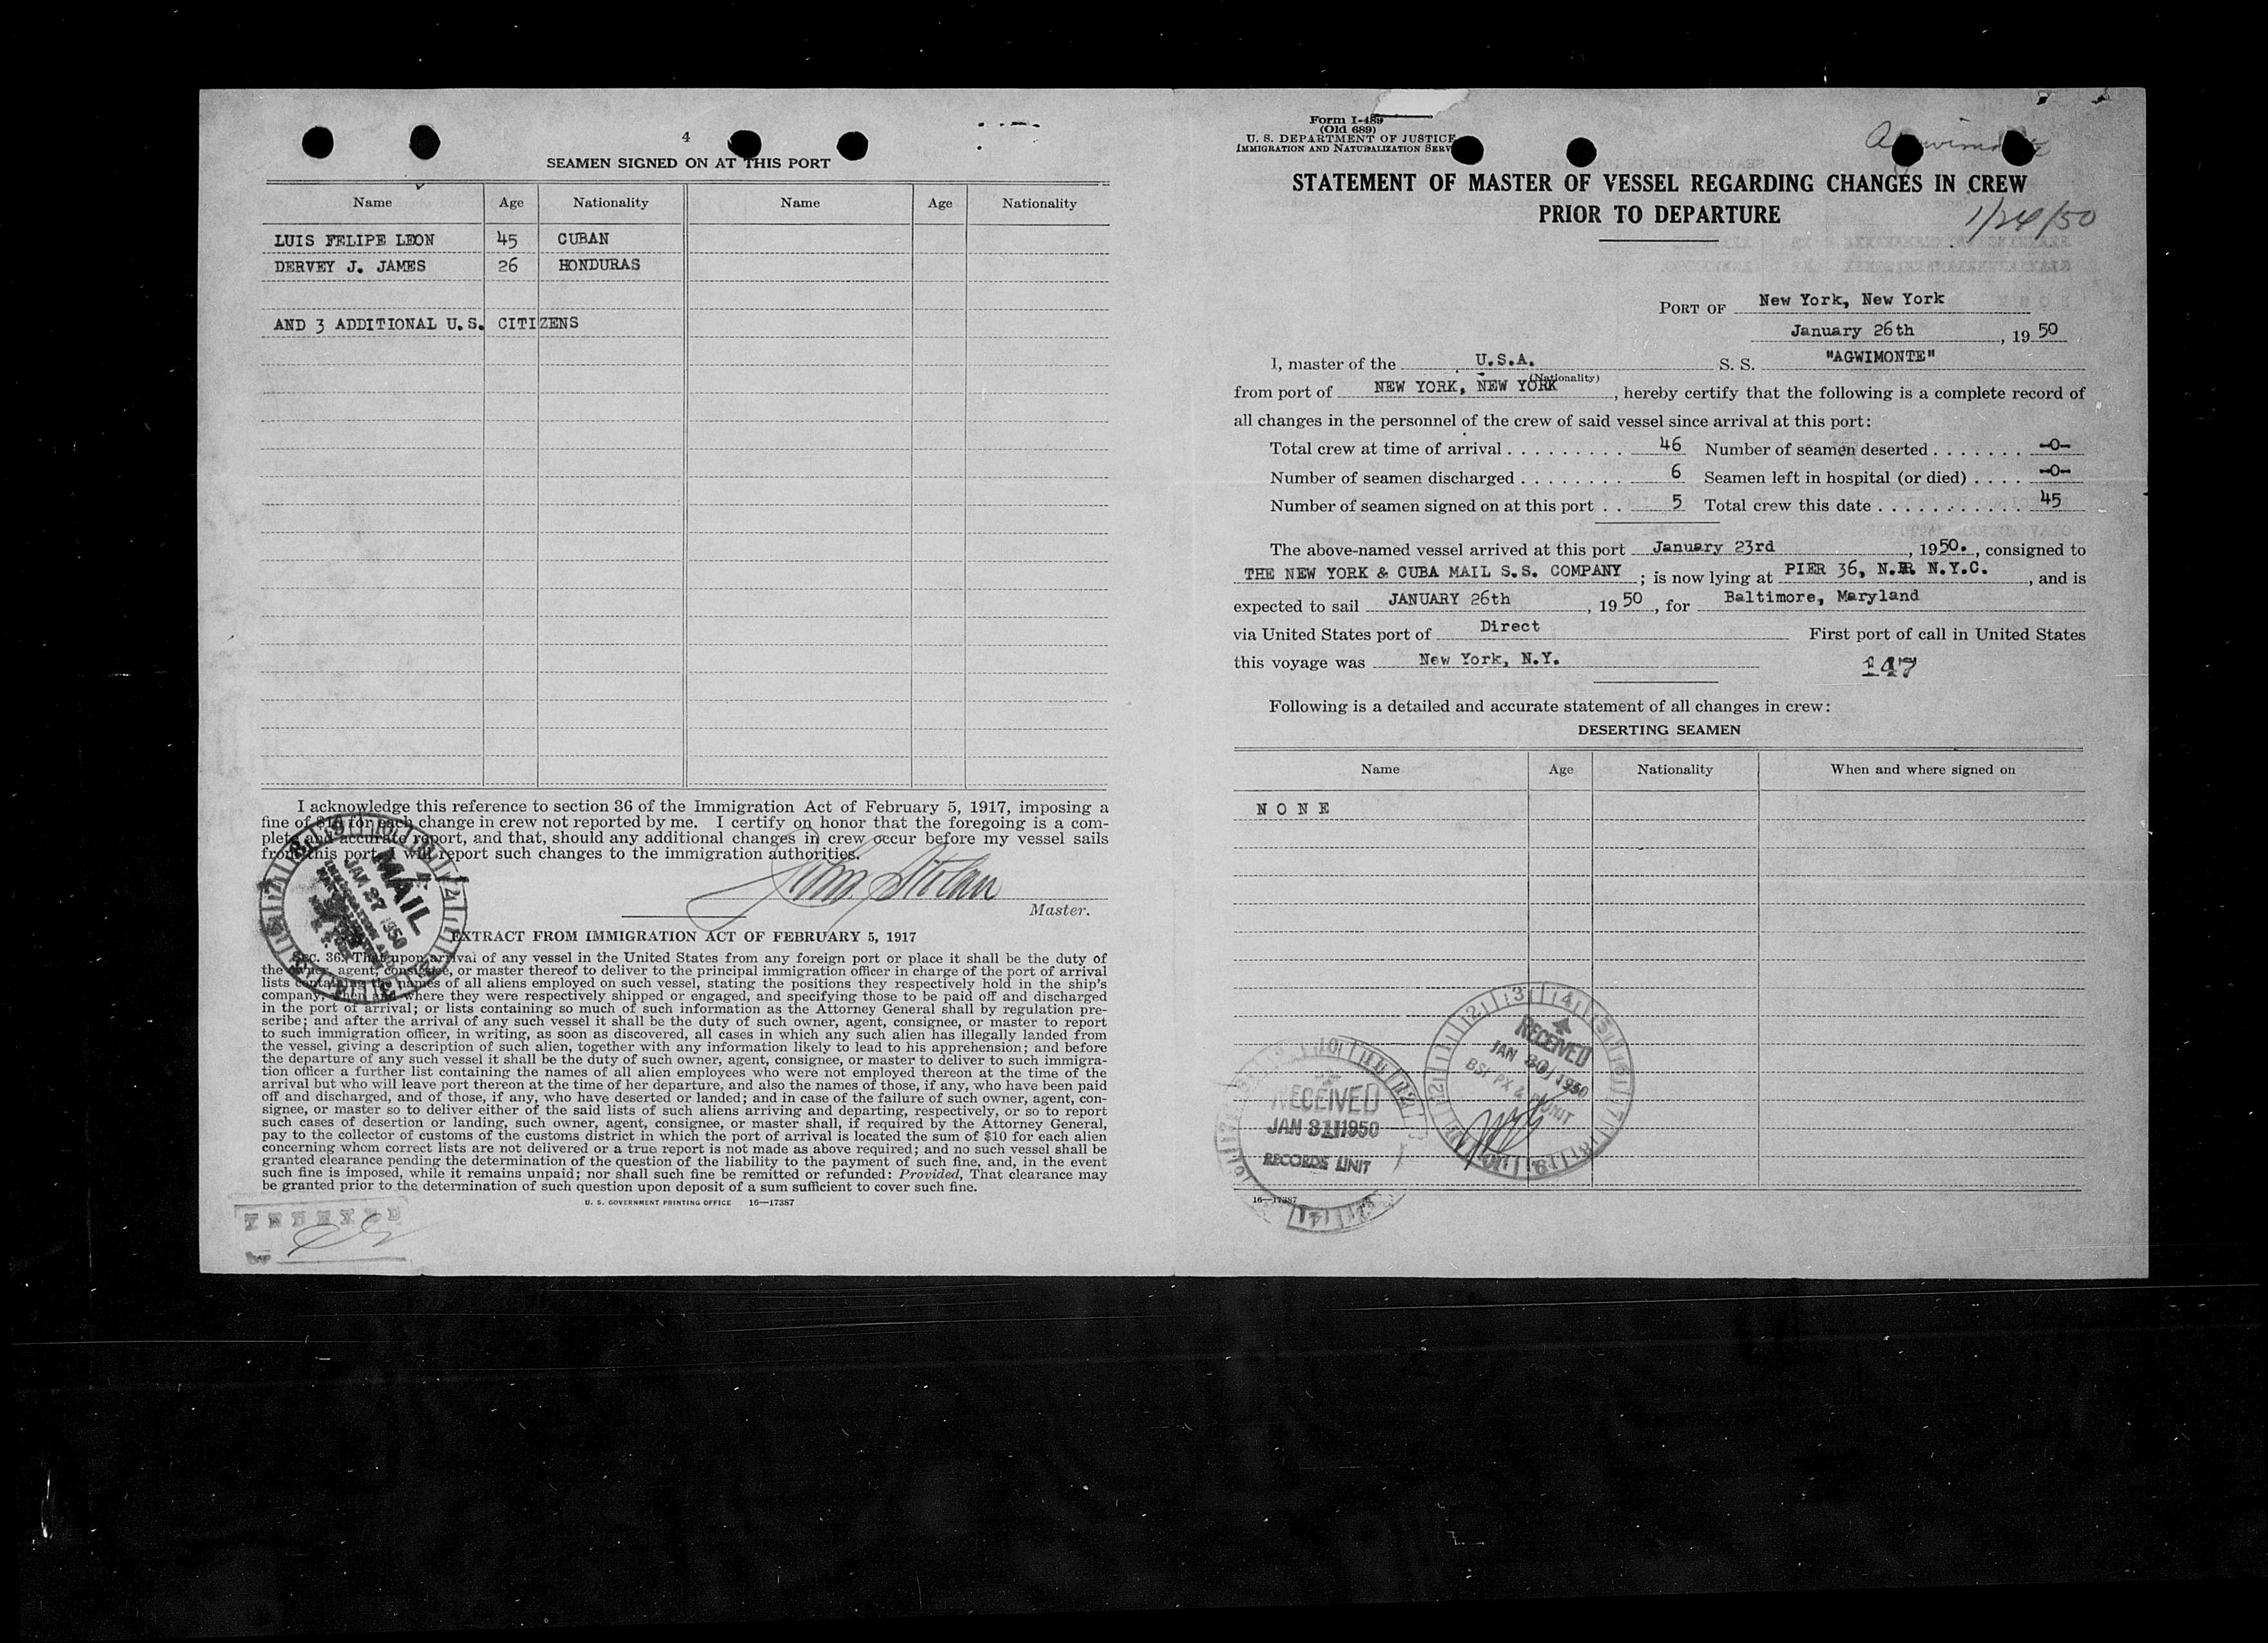 4
SEAMEN SIGNED ON AT THIS PORT
Name Age Nationality Name Age Nationality
LUIS FELIPE LEON 45 CUBAN
DERVEY J. JAMES 26 HONDURAS
AND 3 ADDITIONAL U.S. CITIZENS
I acknowledge this reference to section 36 of the Immigration Act of February 5, 1917, imposing a
fine of $10 for each change in crew not reported by me. I certify on honor that the foregoing is a com-
plete and accurate report, and that, should any additional changes in crew occur before my vessel sails
from this port, I will report such changes to the immigration authorities.
Master.
MAIL
JAN 27 1950
EXTRACT FROM IMMIGRATION ACT OF FEBRUARY 5, 1917
Sec. 36. That upon arrival of any vessel in the United States from any foreign port or place it shall be the duty of
the owner, agent, consignee, or master thereof to deliver to the principal immigration officer in charge of the port of arrival
lists containing the names of all aliens employed on such vessel, stating the positions they respectively hold in the ship's
company, when and where they were respectively shipped or engaged, and specifying those to be paid off and discharged
in the port of arrival; or lists containing so much of such information as the Attorney General shall by regulation pre-
scribe; and after the arrival of any such vessel it shall be the duty of such owner, agent, consignee, or master to report
to such immigration officer, in writing, as soon as discovered, all cases in which any such alien has illegally landed from
the vessel, giving a description of such alien, together with any information likely to lead to his apprehension; and before
the departure of any such vessel it shall be the duty of such owner, agent, consignee, or master to deliver to such immigra-
tion officer a further list containing the names of all alien employees who were not employed thereon at the time of the
arrival but who will leave port thereon at the time of her departure, and also the names of those, if any, who have been paid
off and discharged, and of those, if any, who have deserted or landed; and in case of the failure of such owner, agent, con-
signee, or master so to deliver either of the said lists of such aliens arriving and departing, respectively, or so to report
such cases of desertion or landing, such owner, agent, consignee, or master shall, if required by the Attorney General,
pay to the collector of customs of the customs district in which the port of arrival is located the sum of $10 for each alien
concerning whom correct lists are not delivered or a true report is not made as above required; and no such vessel shall be
granted clearance pending the determination of the question of the liability to the payment of such fine, and, in the event
such fine is imposed, while it remains unpaid; nor shall such fine be remitted or refunded: Provided, That clearance may
be granted prior to the determination of such question upon deposit of a sum sufficient to cover such fine.
U. S. GOVERNMENT PRINTING OFFICE 16—17387
INDEXED
Form I-489
(Old 689)
U. S. DEPARTMENT OF JUSTICE
IMMIGRATION AND NATURALIZATION SERV
STATEMENT OF MASTER OF VESSEL REGARDING CHANGES IN CREW
PRIOR TO DEPARTURE
1/24/50
PORT OF New York, New York
January 26th, 1950
I, master of the U.S.A. S. S. "AGWIMONTE"
(Nationality)
from port of NEW YORK, NEW YORK, hereby certify that the following is a complete record of
all changes in the personnel of the crew of said vessel since arrival at this port:
Total crew at time of arrival . . . . . . . . . 46 Number of seamen deserted . . . . . . . -0-
Number of seamen discharged . . . . . . . . 6 Seamen left in hospital (or died) . . . . -0-
Number of seamen signed on at this port . . 5 Total crew this date . . . . . . . . . . . 45
The above-named vessel arrived at this port January 23rd, 1950., consigned to
THE NEW YORK & CUBA MAIL S.S. COMPANY; is now lying at PIER 36, N.R. N.Y.C., and is
expected to sail JANUARY 26th, 1950, for Baltimore, Maryland
via United States port of Direct First port of call in United States
this voyage was New York, N.Y. 147
Following is a detailed and accurate statement of all changes in crew:
DESERTING SEAMEN
Name Age Nationality When and where signed on
NONE
RECEIVED
JAN 30 1950
RECEIVED
JAN 31 1950
RECORDS UNIT
16—17387